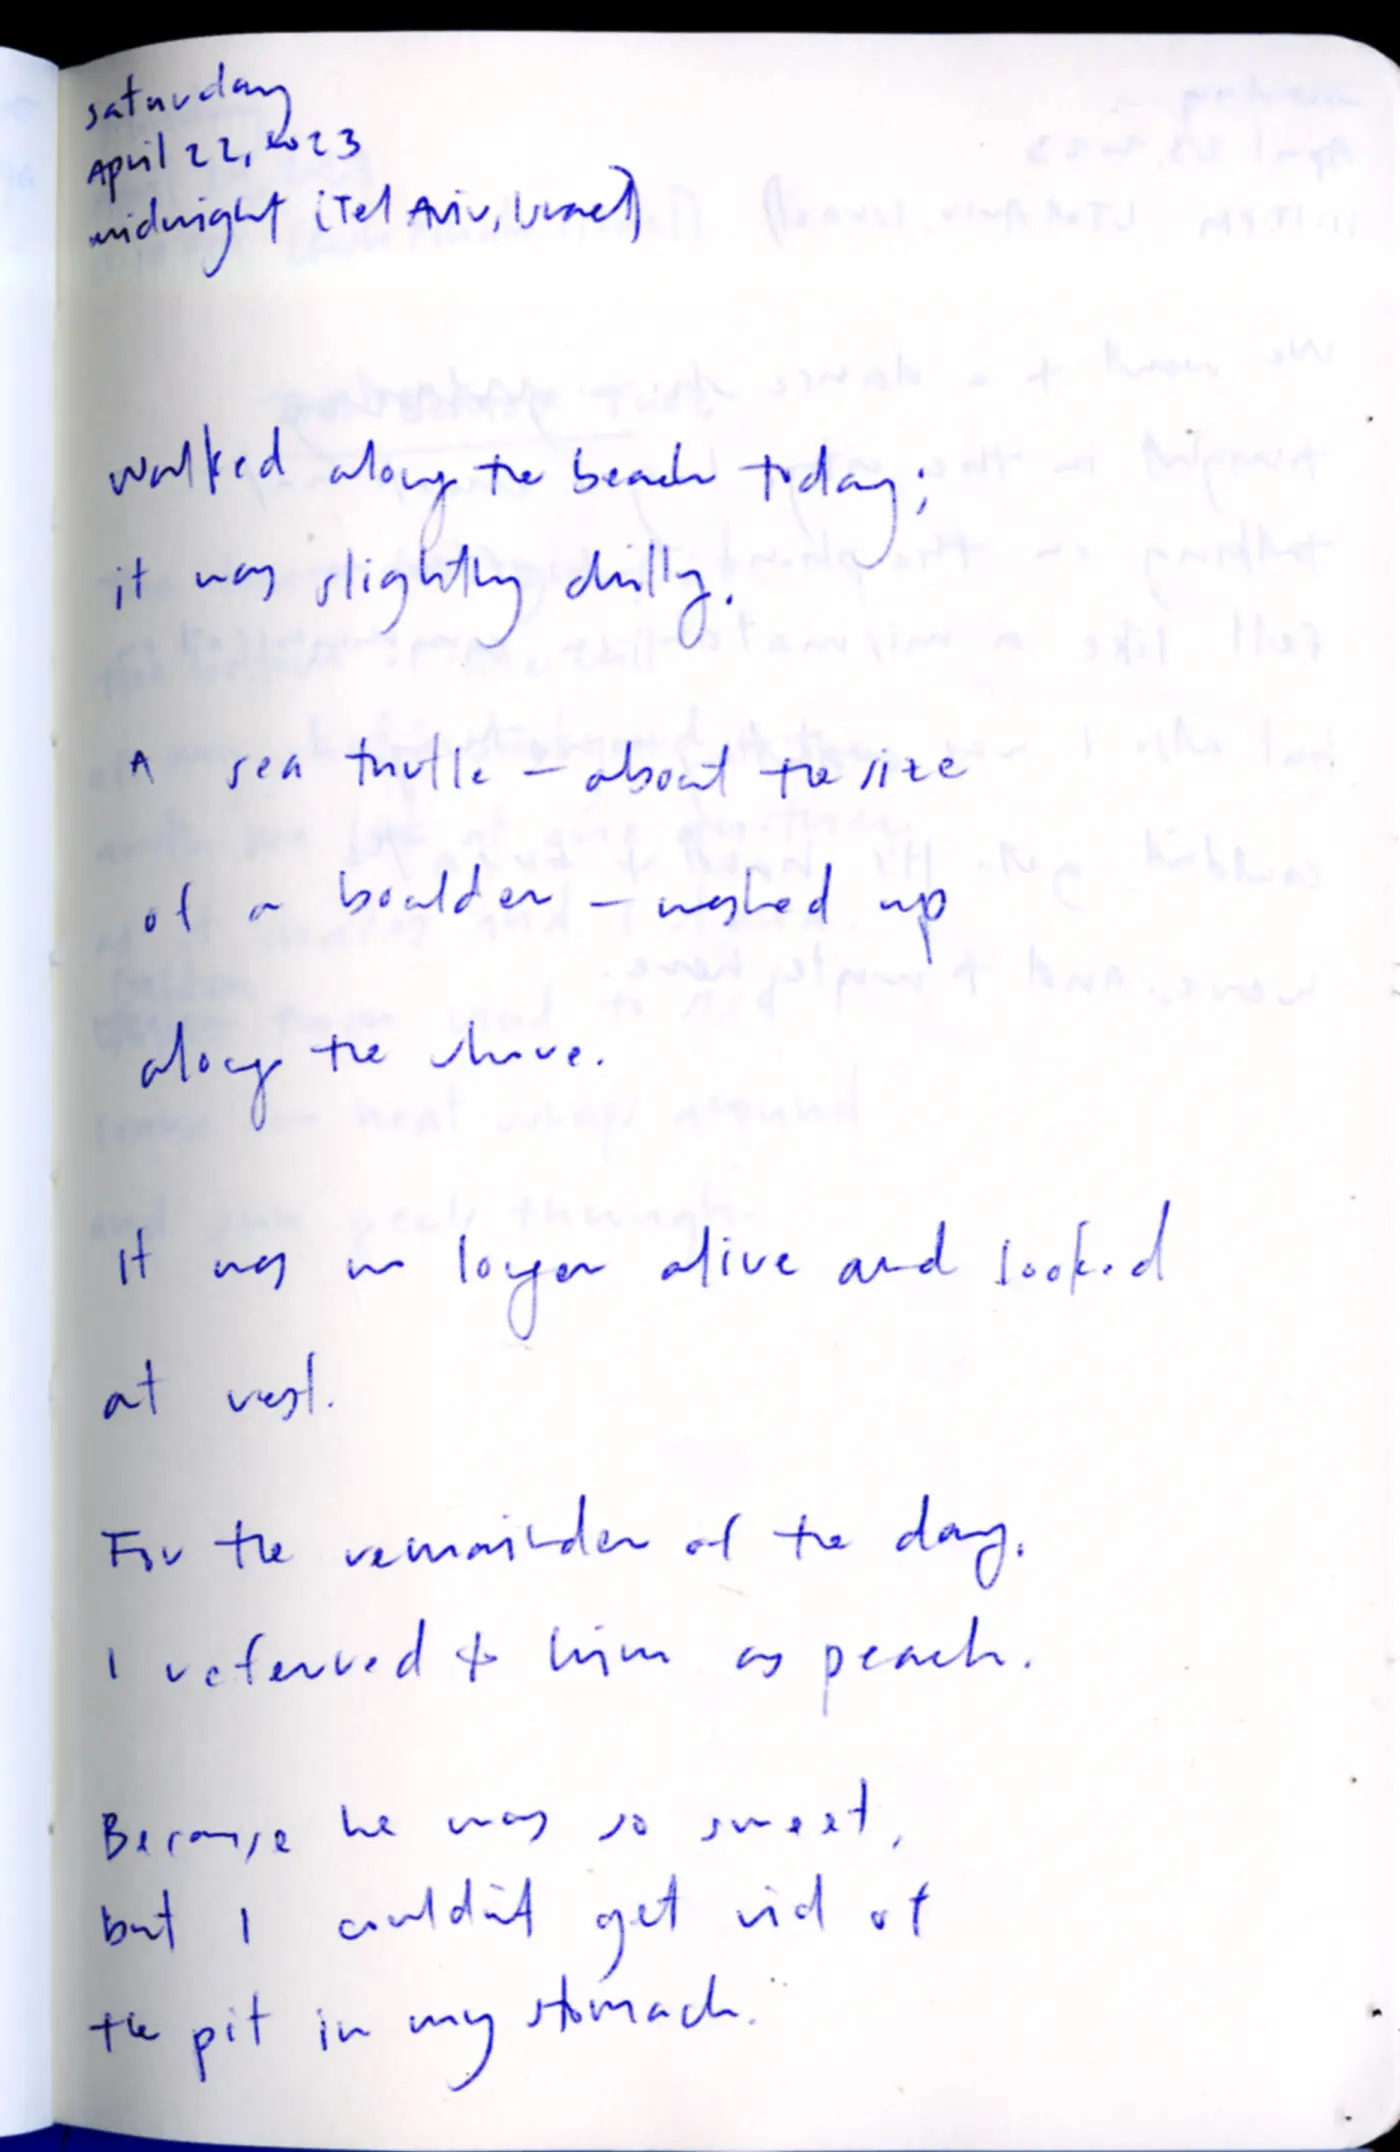 saturday
April 22, 2023
midnight (Tel Aviv, Israel)
walked along the beach today;
it was slightly chilly.
A sea turtle – about the size
of a boulder – washed up
along the shore.
It was no longer alive and looked
at rest.
For the remainder of the day,
I referred to him as peach.
Because he was so sweet,
but I couldn't get rid of
the pit in my stomach.